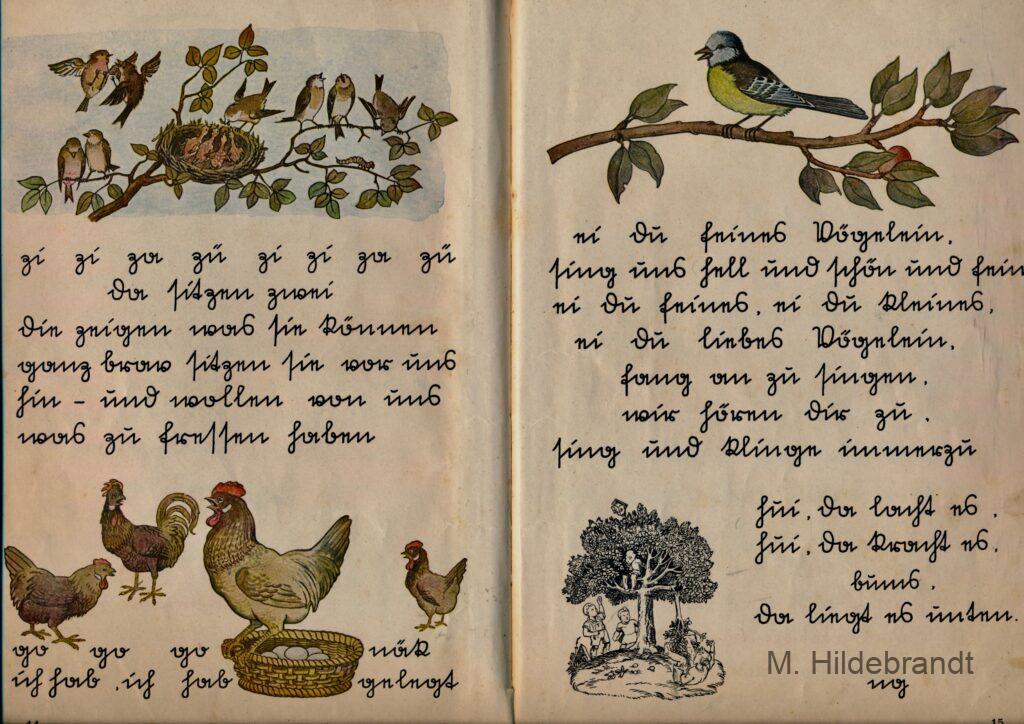 zi zi za zü zi zi za zü
da sitzen zwei
die zeigen was sie können
ganz brav sitzen sie vor uns
hin - und wollen von uns
was zu fressen haben
go go go näk
ich hab , ich hab gelegt
ei du feines Vögelein,
sing uns hell und schön und fein
ei du feines, ei du kleines,
ei du liebes Vögelein,
fang an zu singen,
wir hören dir zu,
sing und klinge immerzu
hui, da lacht es,
hui, da kracht es,
bums,
da liegt es unten.
M. Hildebrandt
ng
15